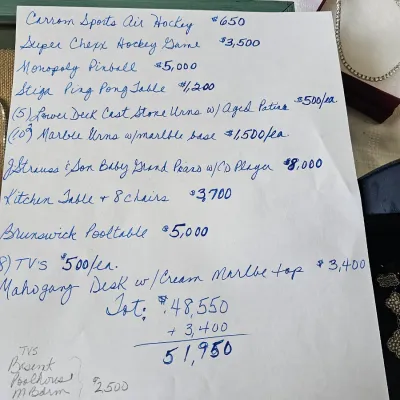 Carrom Sports Air Hockey $650
Super Chexx Hockey Game $3,500
Monopoly Pinball $5,000
Stiga Ping Pong Table $1,200
(5) Lower Deck Cast Stone Urns w/ Aged Patina $500/ea
Marble Urns w/marble base $1,500/ea
J. Strauss & Son Baby Grand Piano w/CD Player $8,000
Kitchen Table + 8 chairs $3,700
Brunswick Pooltable $5,000
8) TVS $500/ea.
Mahogany Desk w/Cream Marlbe top $3,400
Tot: $48,550
+ 3,400
51,950
TVS
Bsemt
Poolhouse
MBdrm
2500